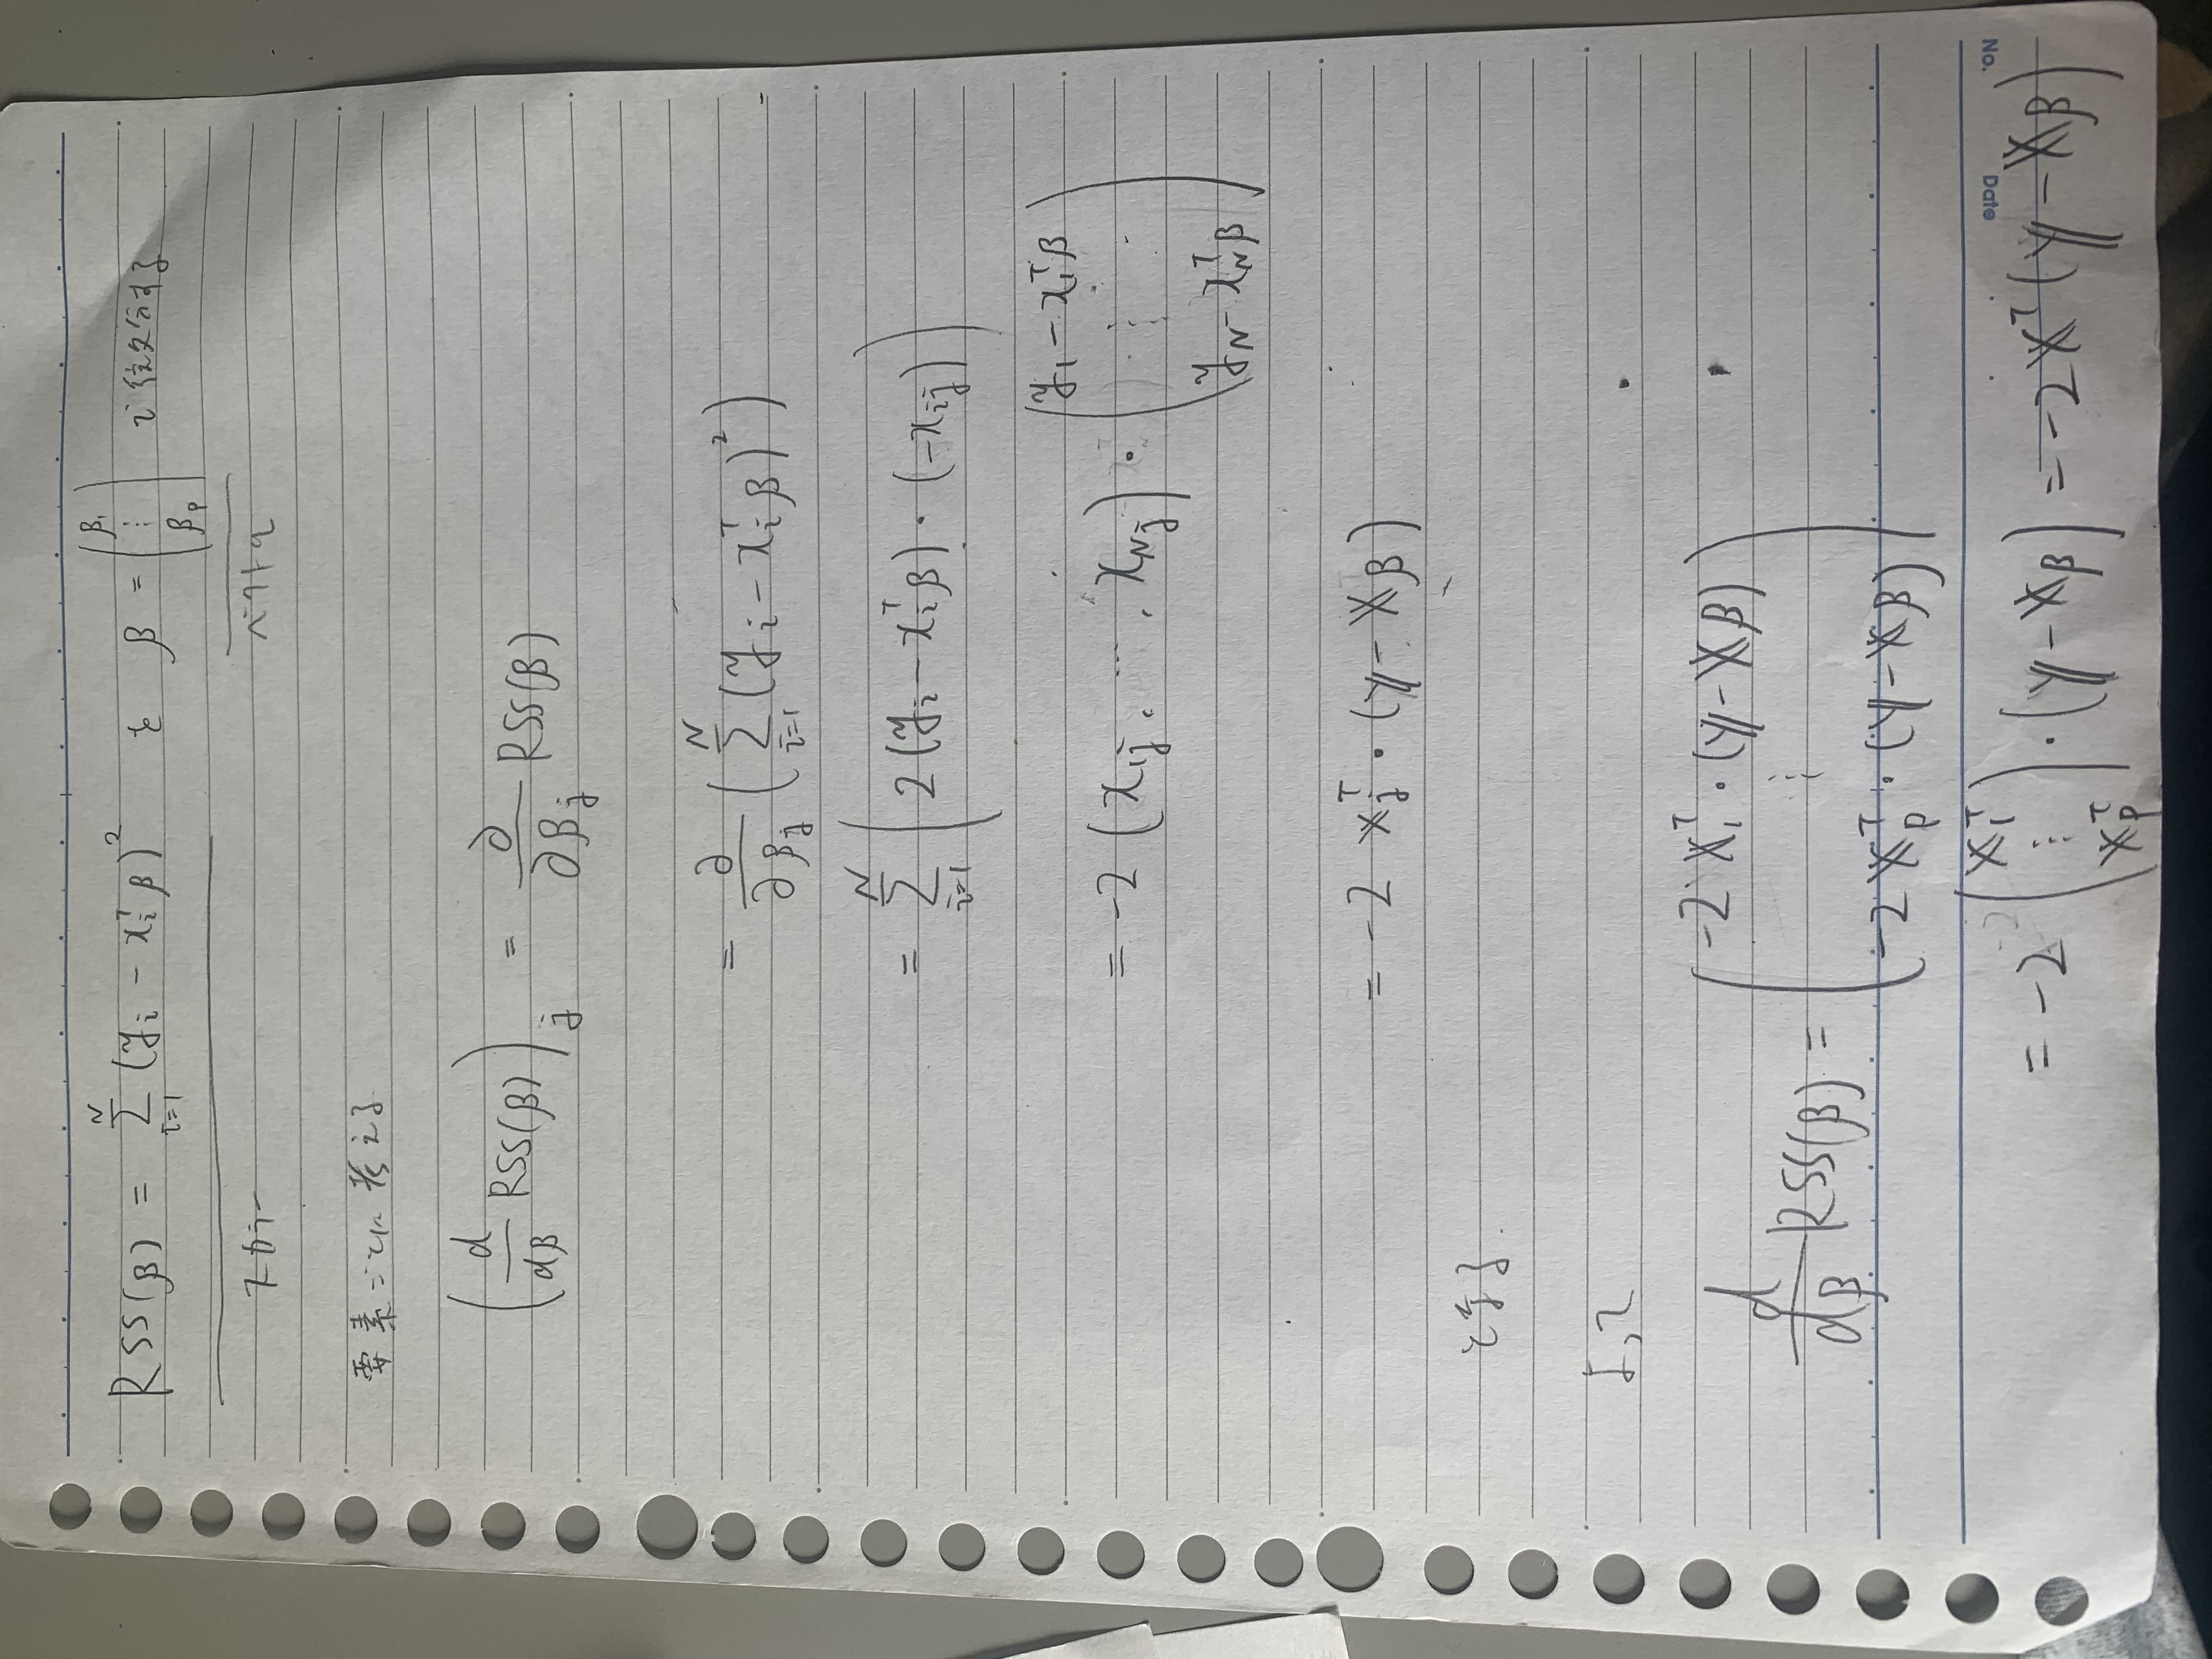 RSS(β) = Σ_{i=1}^{N} (y_i - x_i^T β)^2 を β = (β_1 ⋮ β_p) で微分する
スカラー ベクトル
要素ごとに考える
(d/dβ RSS(β))_j = ∂/∂β_j RSS(β)
= ∂/∂β_j (Σ_{i=1}^{N} (y_i - x_i^T β)^2)
= Σ_{i=1}^{N} (2(y_i - x_i^T β)・(-x_{ij}))
= -2 (x_{1j}, …, x_{Nj})・(y_1 - x_1^T β ⋮ y_N - x_N^T β)
= -2 𝕏_j^T・(𝕪 - 𝕏β)
となる.
よって
d/dβ RSS(β) = (-2 𝕏_1^T・(𝕪 - 𝕏β) ⋮ -2 𝕏_p^T・(𝕪 - 𝕏β))
No. Date
= -2 (𝕏_1^T ⋮ 𝕏_p^T)・(𝕪 - 𝕏β) = -2𝕏^T(𝕪 - 𝕏β)